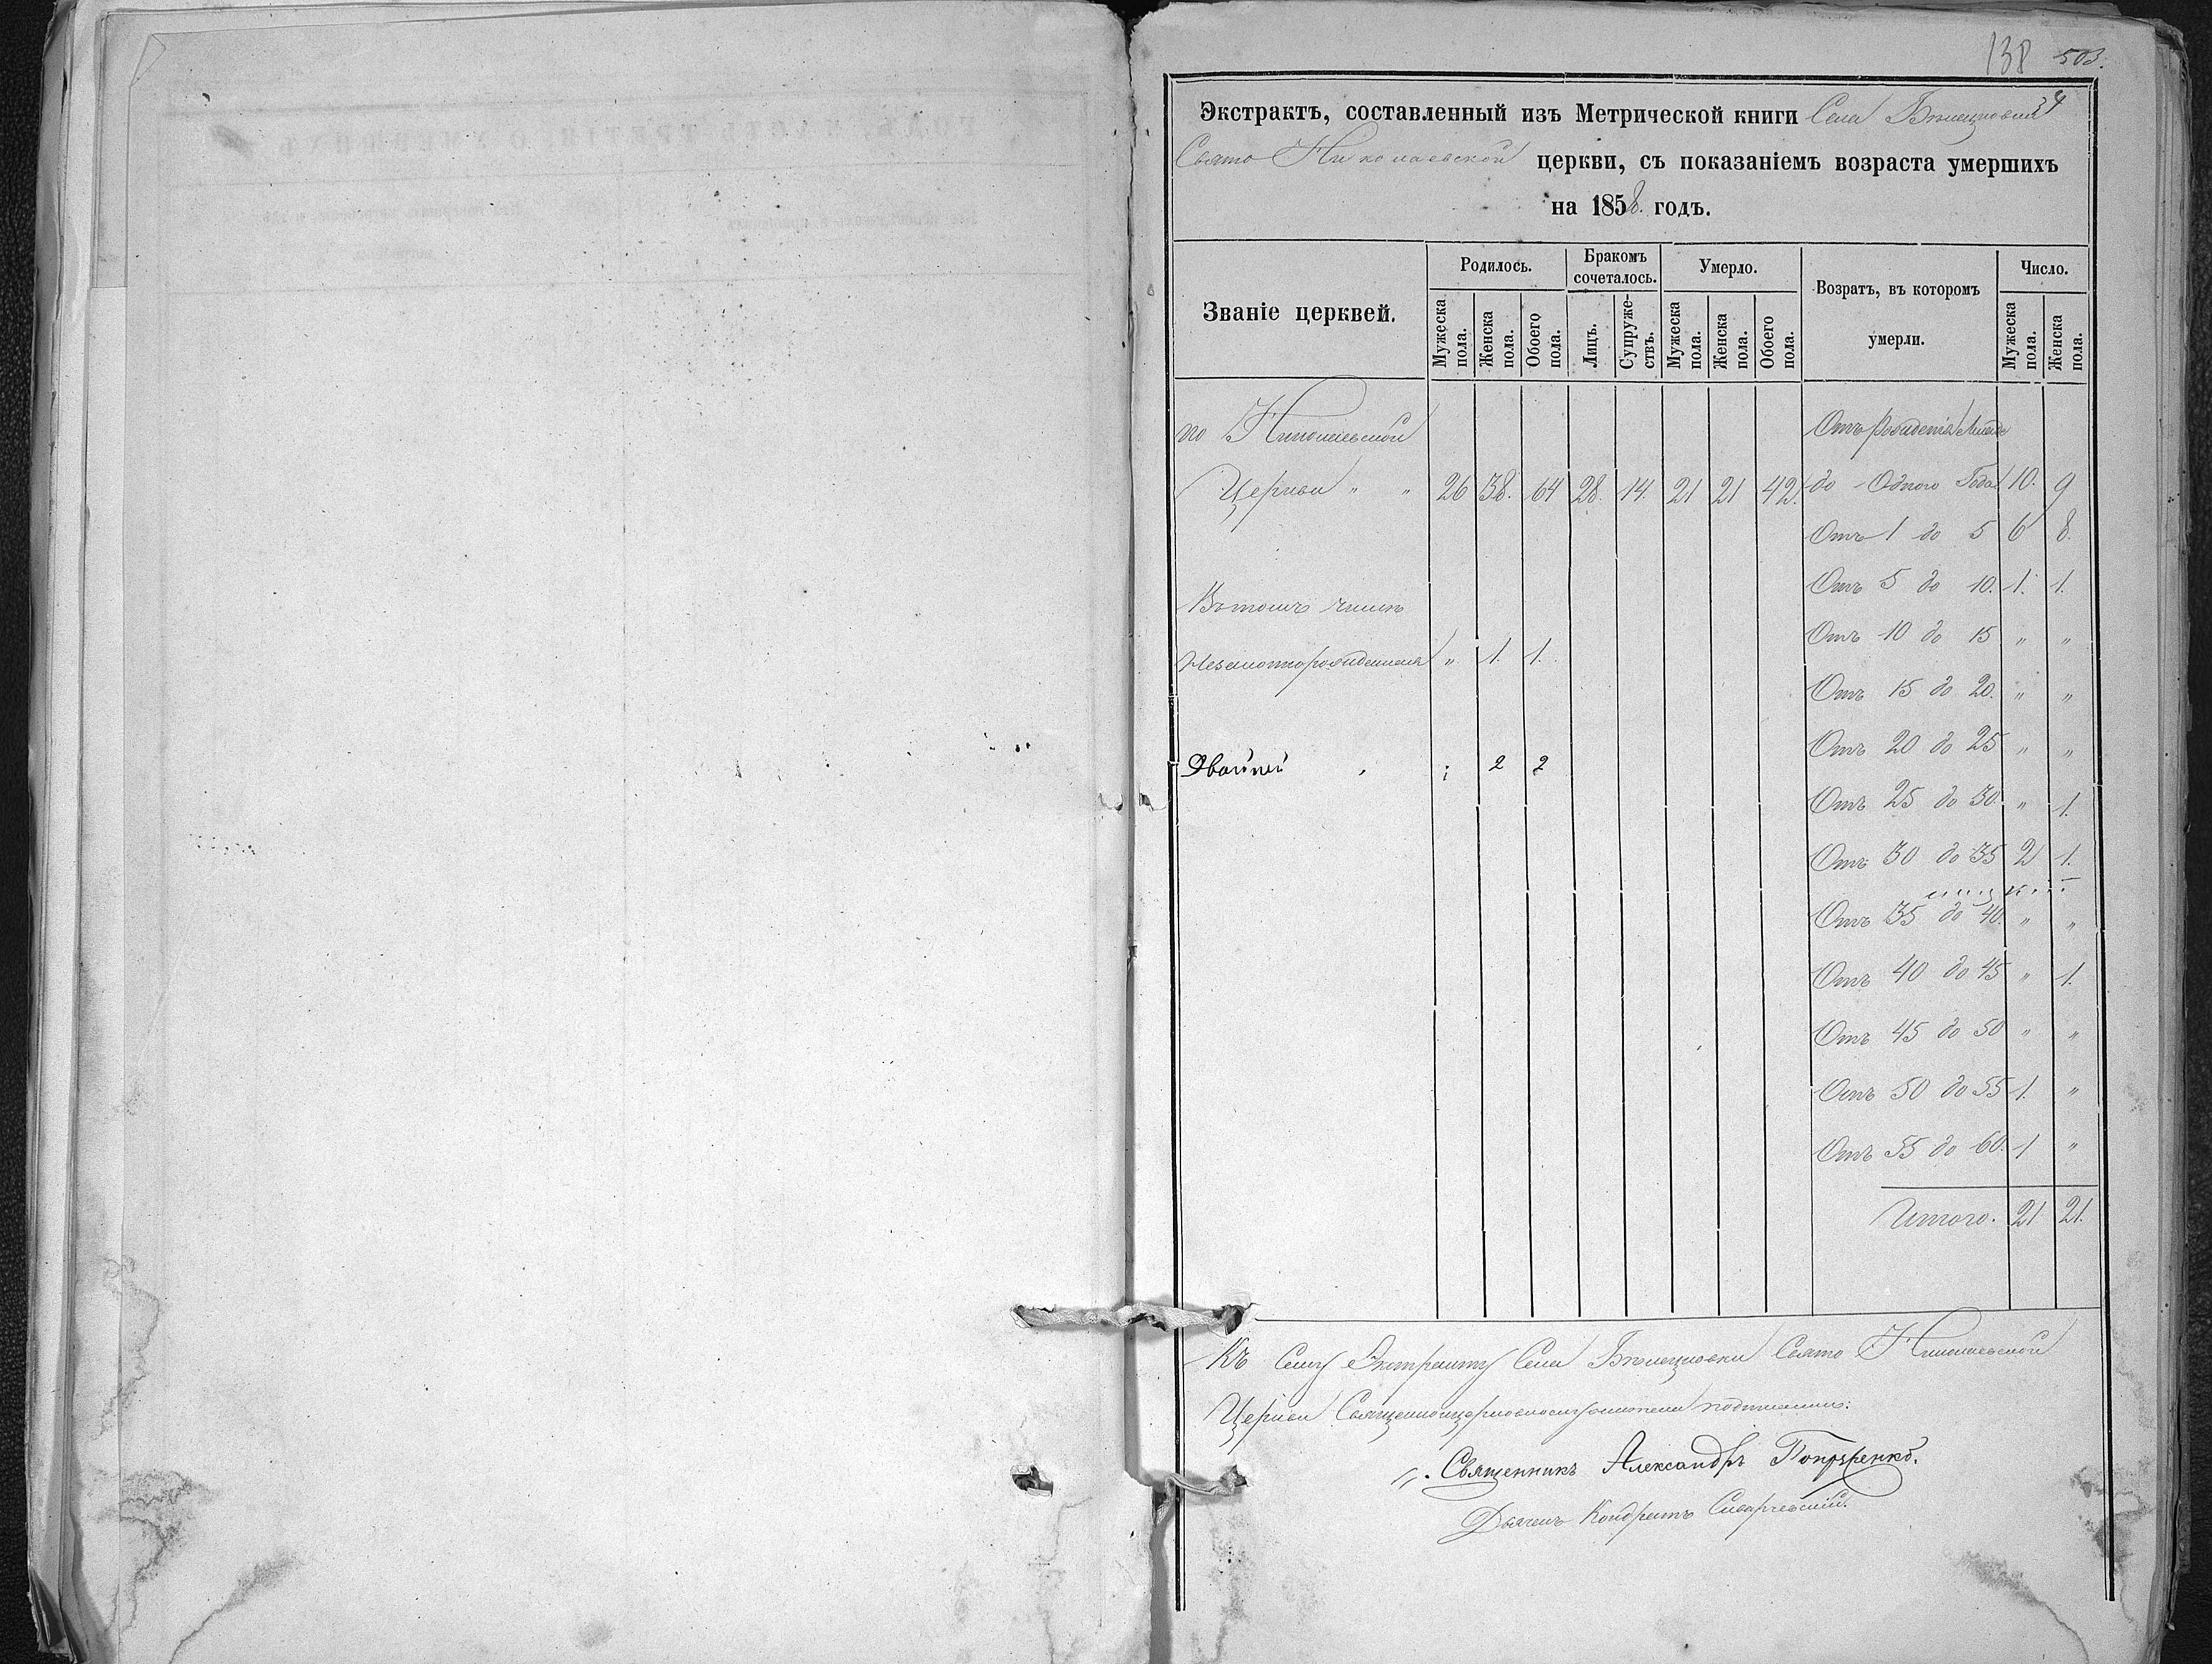 138 503.
Экстрактъ, составленный изъ Метрической книги Села Бѣлецковки 34
Свято Николаевской церкви, съ показаніемъ возраста умершихъ
на 1858. годъ.
Званіе церквей. Родилось. Бракомъ сочеталось. Умерло. Возратъ, въ которомъ умерли. Число.
Мужеска пола. Женска пола. Обоего пола. Лицъ. Супружествъ. Мужеска пола. Женска пола. Обоего пола. Мужеска пола. Женска пола.
по Николаевской Отъ Рожденія
Церкви " " 26 38. 64 28. 14. 21 21 42. до Одного Года 10. 9
Отъ 1 до 5 6 8.
Отъ 5 до 10. 1. 1.
Въ томъ числѣ
Отъ 10 до 15 " "
Незаконнорожденныхъ " 1. 1.
Отъ 15 до 20. " "
Отъ 20 до 25 " "
Двойней 2 2
Отъ 25 до 30. " 1.
Отъ 30 до 35 2 1.
Отъ 35 до 40. " "
Отъ 40 до 45 " 1.
Отъ 45 до 50 " "
Отъ 50 до 55 1. "
Отъ 55 до 60. 1 "
Итого. 21 21.
Къ Сему Экстракту Села Бѣлецковки Свято Николаевской
Церкви Священноцерковнослужители подписались:
Священникъ Александръ
Дьячекъ Кондратъ